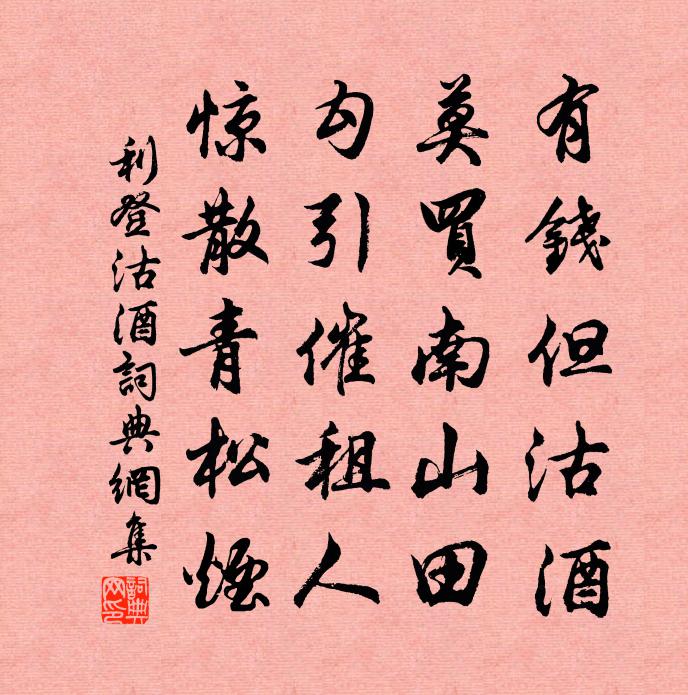 有錢但沽酒
莫買南山田
勾引催租人
惊散青松煙
利登沽酒詞典網集
詞典網印